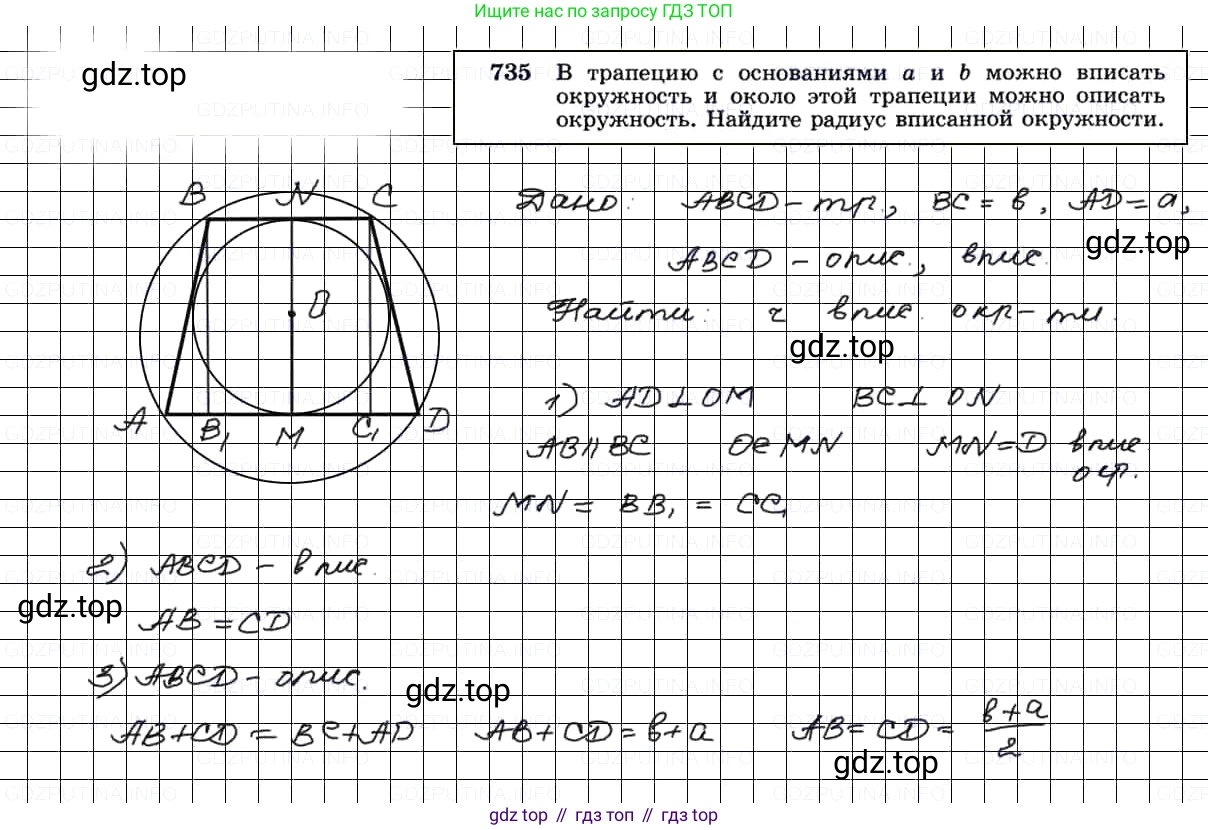 Ищите нас по запросу ГДЗ ТОП
gdz.top
735 В трапецию с основаниями a и b можно вписать
окружность и около этой трапеции можно описать
окружность. Найдите радиус вписанной окружности.
B N C
O
A B₁ M C₁ D
Дано: ABCD – тр., BC = b, AD = a,
gdz.top
ABCD – опис., впис.
Найти: r впис. окр-ти.
gdz.top
1) AD⊥OM BC⊥ON
AB∥BC O∈MN MN=D впис.
окр.
MN = BB₁ = CC₁
2) ABCD – впис.
gdz.top
AB = CD
3) ABCD – опис.
gdz.top
AB+CD = BC+AD AB+CD = b+a AB = CD = (b+a)/2
gdz.top
gdz top // гдз топ // гдз top
GDZPUTINA.INFO